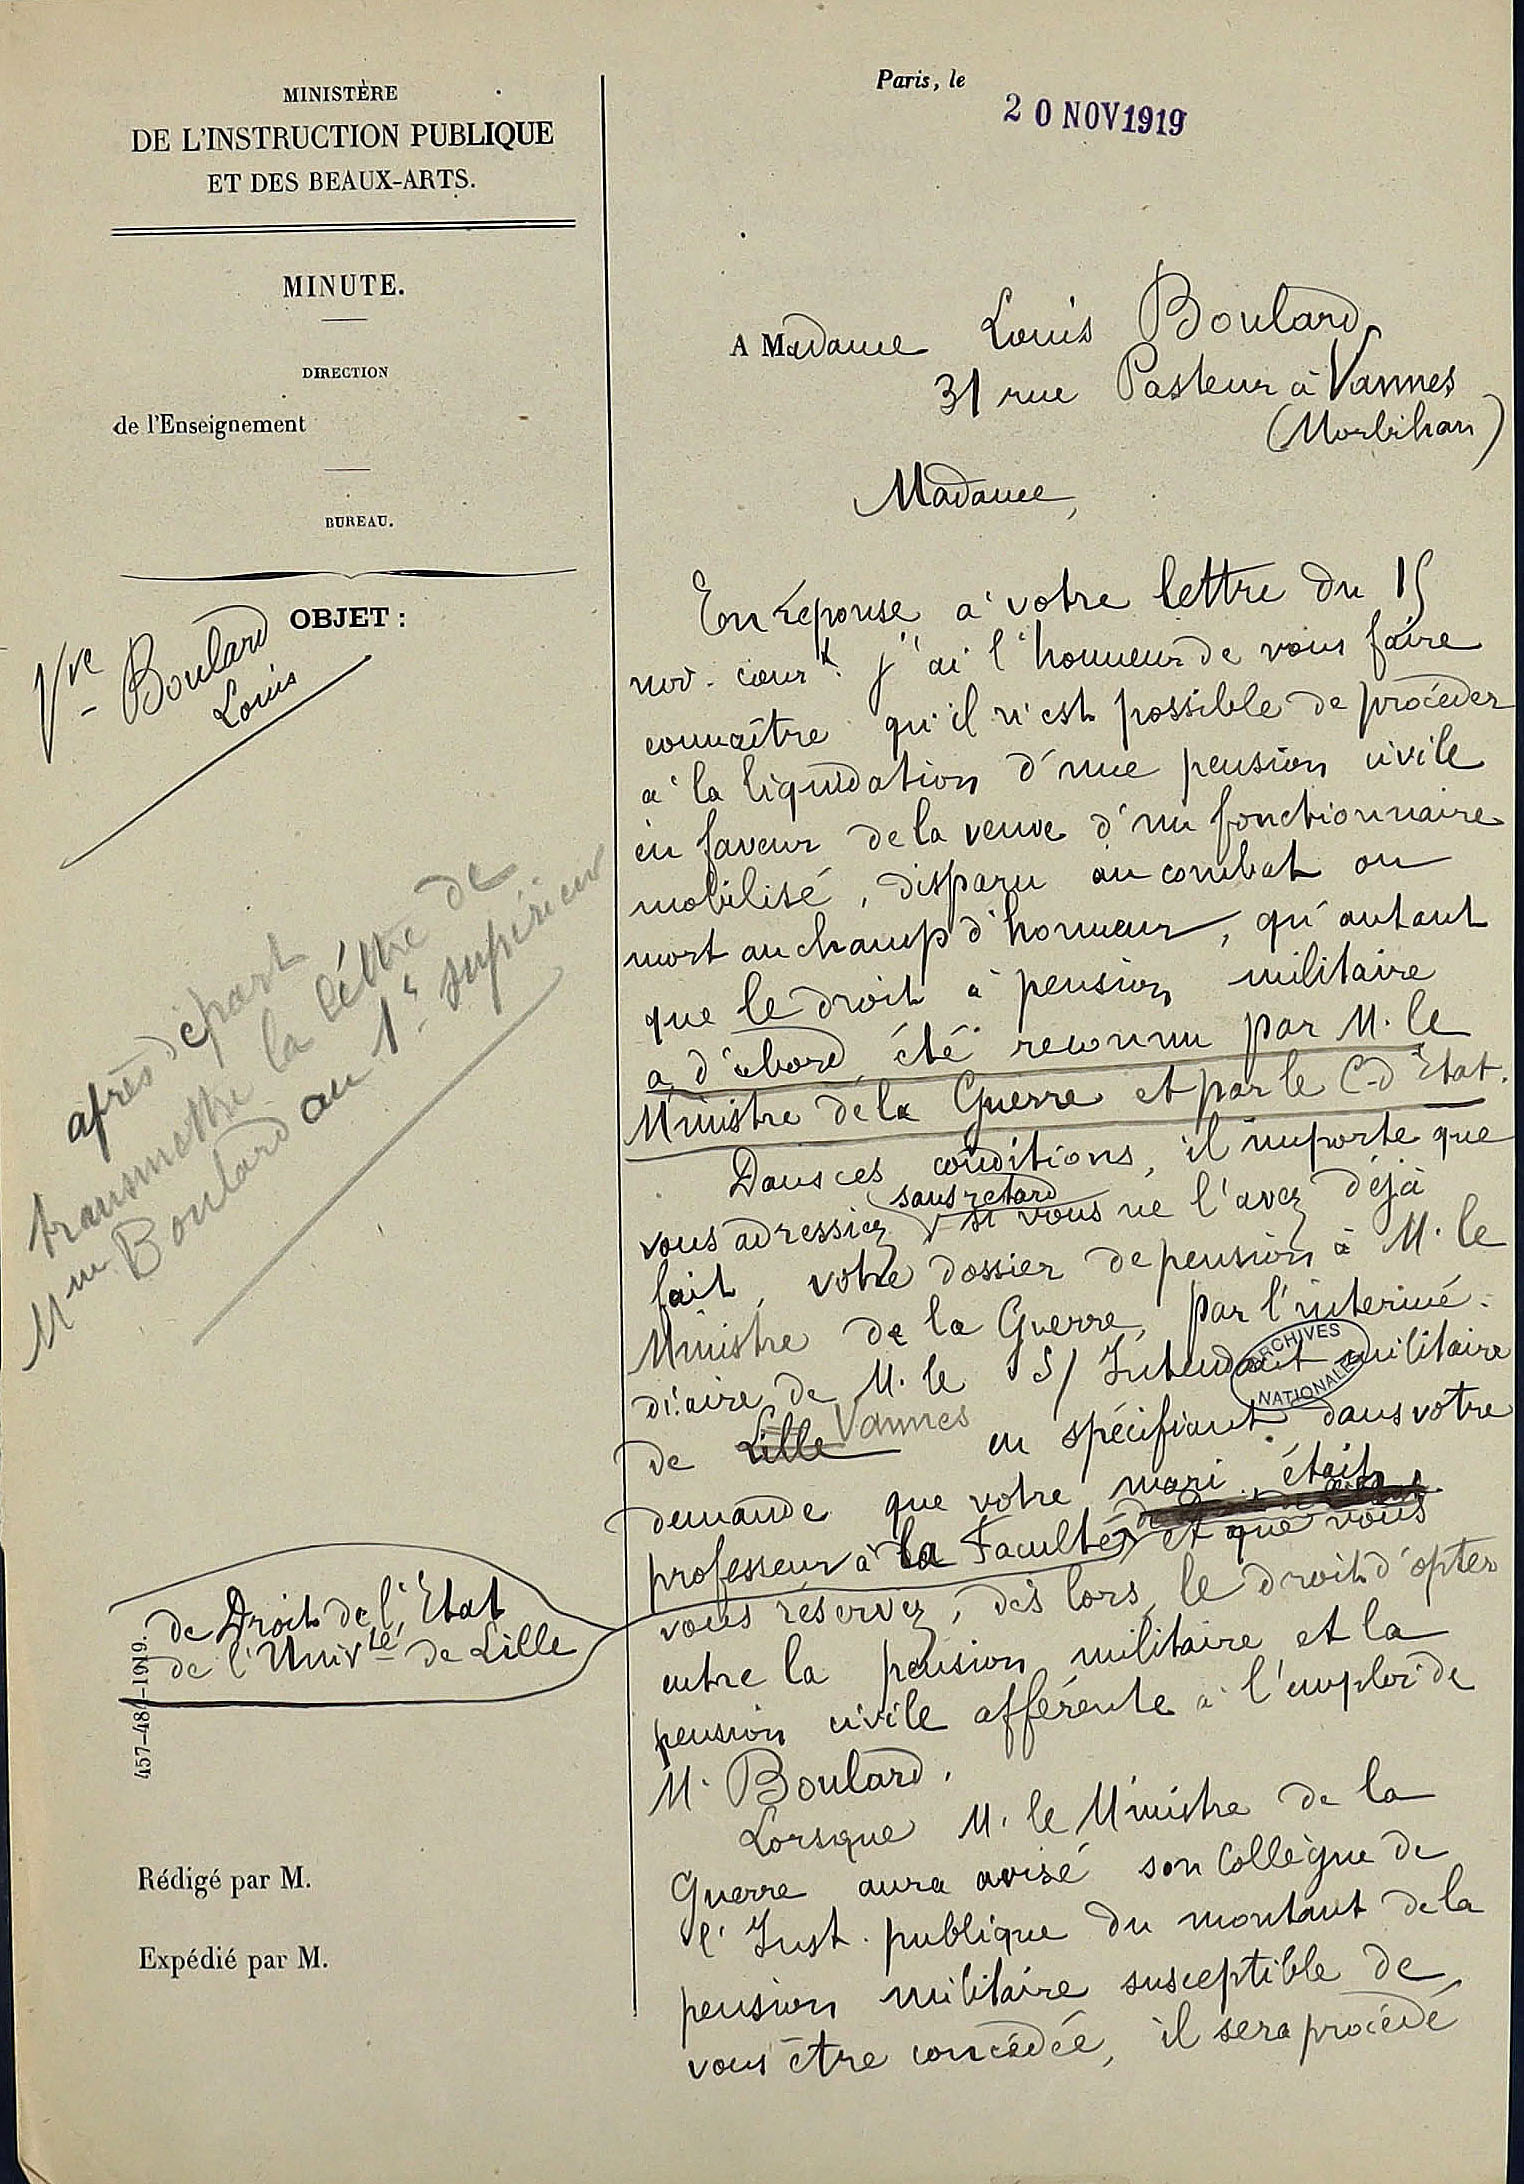 MINISTÈRE
DE L'INSTRUCTION PUBLIQUE
ET DES BEAUX-ARTS.
MINUTE.
DIRECTION
de l'Enseignement
BUREAU.
OBJET :
Vve Boulard
Louis
après départ
transmettre la lettre de
Mme Boulard au 1er supérieur
de Droit de l'Etat
de l'Univté de Lille
457-484-1919.
Rédigé par M.
Expédié par M.
Paris, le
20 NOV 1919
A Madame Louis Boulard
31 rue Pasteur à Vannes
(Morbihan)
Madame,
En réponse à votre lettre du 15
nov. court j'ai l'honneur de vous faire
connaître qu'il n'est possible de procéder
à la liquidation d'une pension civile
en faveur de la veuve d'un fonctionnaire
mobilisé, disparu au combat ou
mort au champ d'honneur, qu'autant
que le droit à pension militaire
a d'abord été reconnu par M. le
Ministre de la Guerre et par le C. d'Etat.
Dans ces conditions, il importe que
sans retard
vous adressiez si vous ne l'avez déjà
fait, votre dossier de pension à M. le
Ministre de la Guerre, par l'intermé-
diaire de M. le S/ Intendant militaire
ARCHIVES NATIONALES
de Lille Vannes en spécifiant dans votre
demande que votre mari était
professeur à la Faculté et que vous
vous réservez, dès lors, le droit d'opter
entre la pension militaire et la
pension civile afférente à l'emploi de
M. Boulard.
Lorsque M. le Ministre de la
Guerre aura avisé son Collègue de
l'Inst. publique du montant de la
pension militaire susceptible de
vous être concédée, il sera procédé